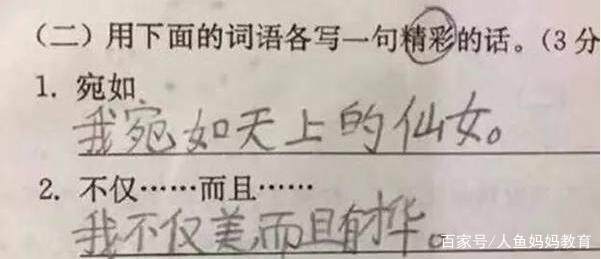 （二）用下面的词语各写一句精彩的话。（3分
1. 宛如
我宛如天上的仙女。
2. 不仅……而且……
我不仅美，而且有才华。
百家号/人鱼妈妈教育